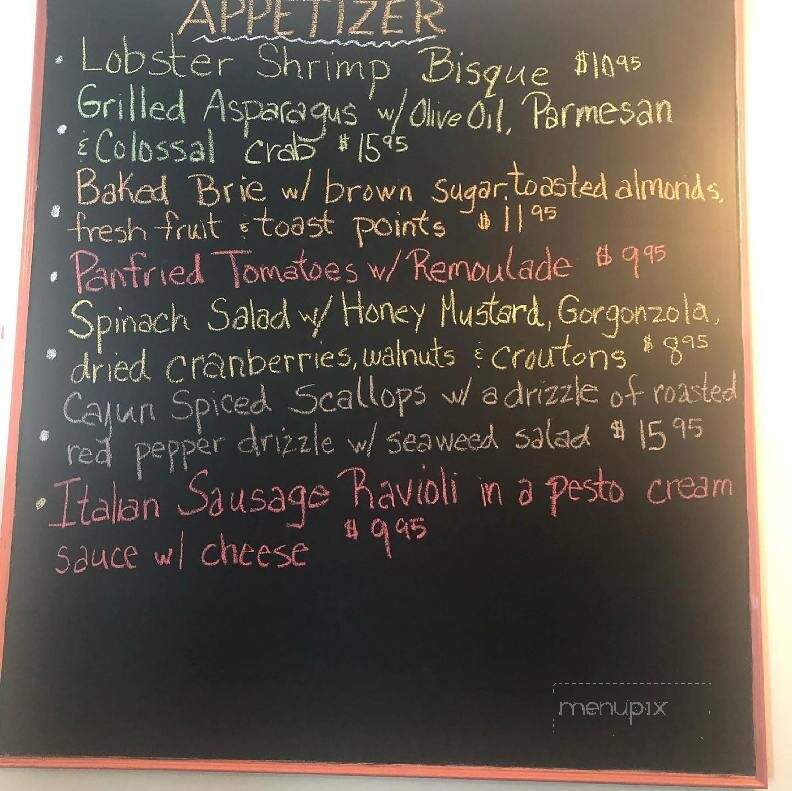 APPETIZER
• Lobster Shrimp Bisque $10 95
• Grilled Asparagus w/ Olive Oil, Parmesan
& Colossal crab $15 95
• Baked Brie w/ brown sugar, toasted almonds,
fresh fruit & toast points $11 95
• Panfried Tomatoes w/ Remoulade $9 95
• Spinach Salad w/ Honey Mustard, Gorgonzola,
dried cranberries, walnuts & croutons $8 95
• Cajun Spiced Scallops w/ a drizzle of roasted
red pepper drizzle w/ seaweed salad $15 95
• Italian Sausage Ravioli in a pesto cream
sauce w/ cheese $9 95
menupix